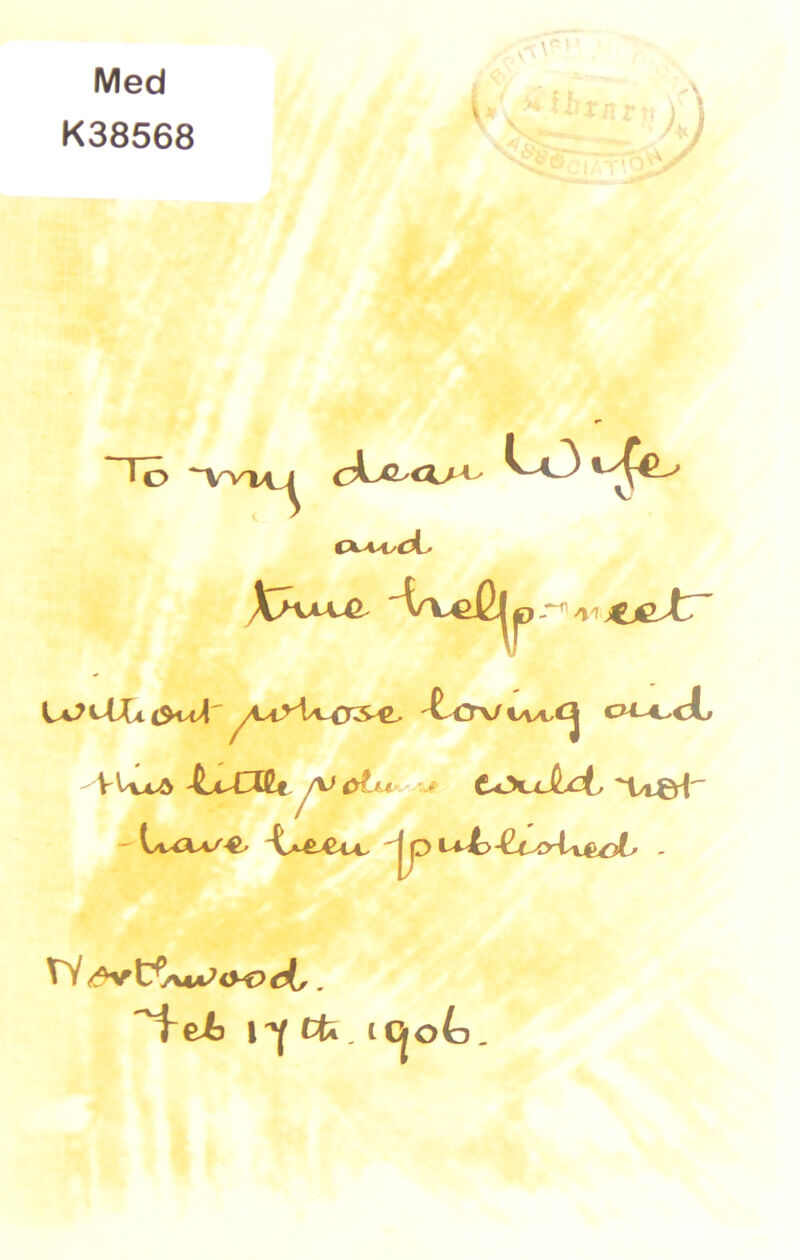 Med
K38568
BRITISH MEDICAL
Library
ASSOCIATION
To my dear Wife
and
true help-meet
without whose loving aid
this little volume could not
have been published -
Northwood.
Feb 17th. 1906.